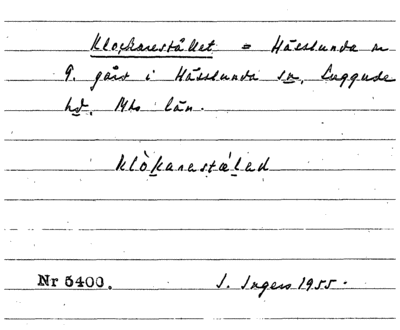 Klockarestället = Hässlunda n
9. gård i Hässlunda sn, Luggude
hd, Mhs län.
Klòkarestälad
Nr 5400. I. Ingers 1955.